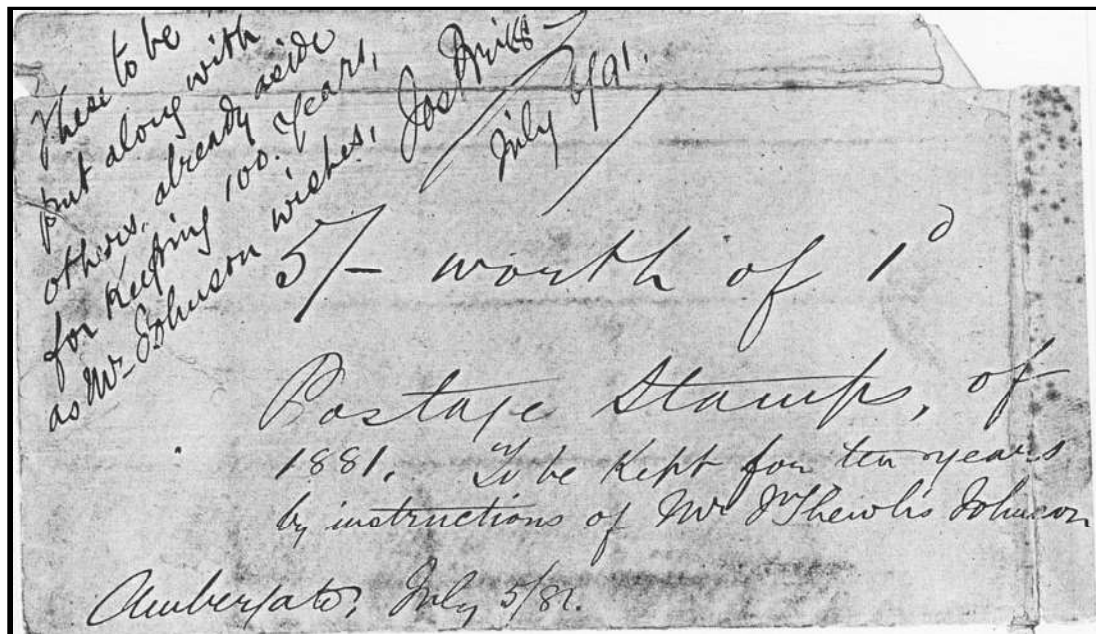 These to be
put along with
others, already aside
for keeping 100. years,
as Mr. Johnson wishes,
July 9/91.
5/- worth of 1d
Postage Stamps, of
1881. To be kept for ten years
by instructions of Mr Wm Thewlis Johnson
Ambergate, July 5/81.